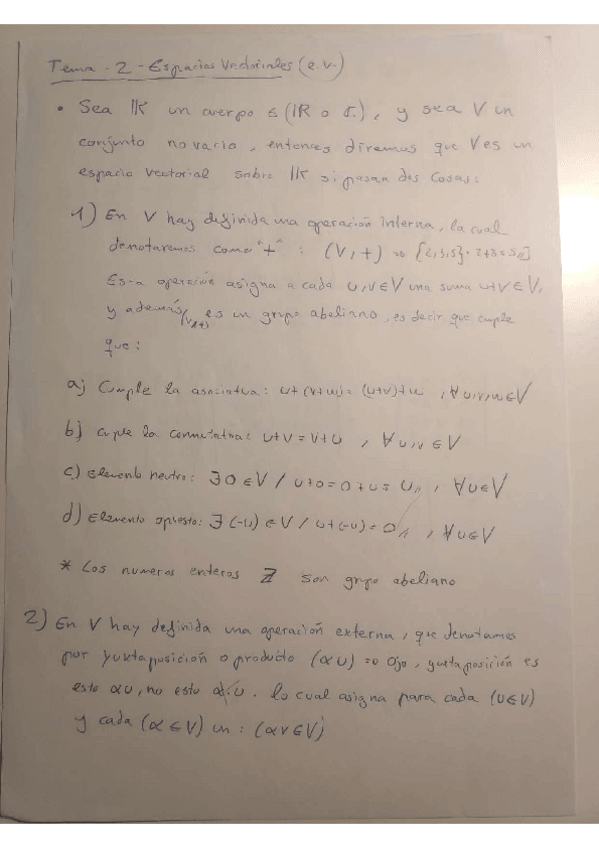 Tema - 2 - Espacios Vectoriales (e.v.)
• Sea IK un cuerpo ≤ (IR o ℂ), y sea V un
conjunto no vacio, entonces diremos que V es un
espacio vectorial sobre IK si pasan dos cosas:
1) En V hay definida una operación interna, la cual
denotaremos como "+" : (V,+)
Esta operación asigna a cada u,v∈V una suma u+v∈V,
y además (V,+) es un grupo abeliano, es decir que cuple
que:
a) Cumple la asociativa: u+(v+w)=(u+v)+w , ∀u,v,w∈V
b) cuple la conmutativa: u+v=v+u , ∀u,v∈V
c) Elemento neutro: ∃0∈V / u+0=0+u=u , ∀u∈V
d) Elemento opuesto: ∃(-u)∈V / u+(-u)=0 , ∀u∈V
* Los numeros enteros ℤ son grupo abeliano
2) En V hay definida una operación externa, que denotamos
por yuxtaposición o producto (αu) ⇒ Ojo, yuxtaposición es
esto αu, no esto α·u. lo cual asigna para cada (u∈V)
y cada (α∈V) un : (αv∈V)